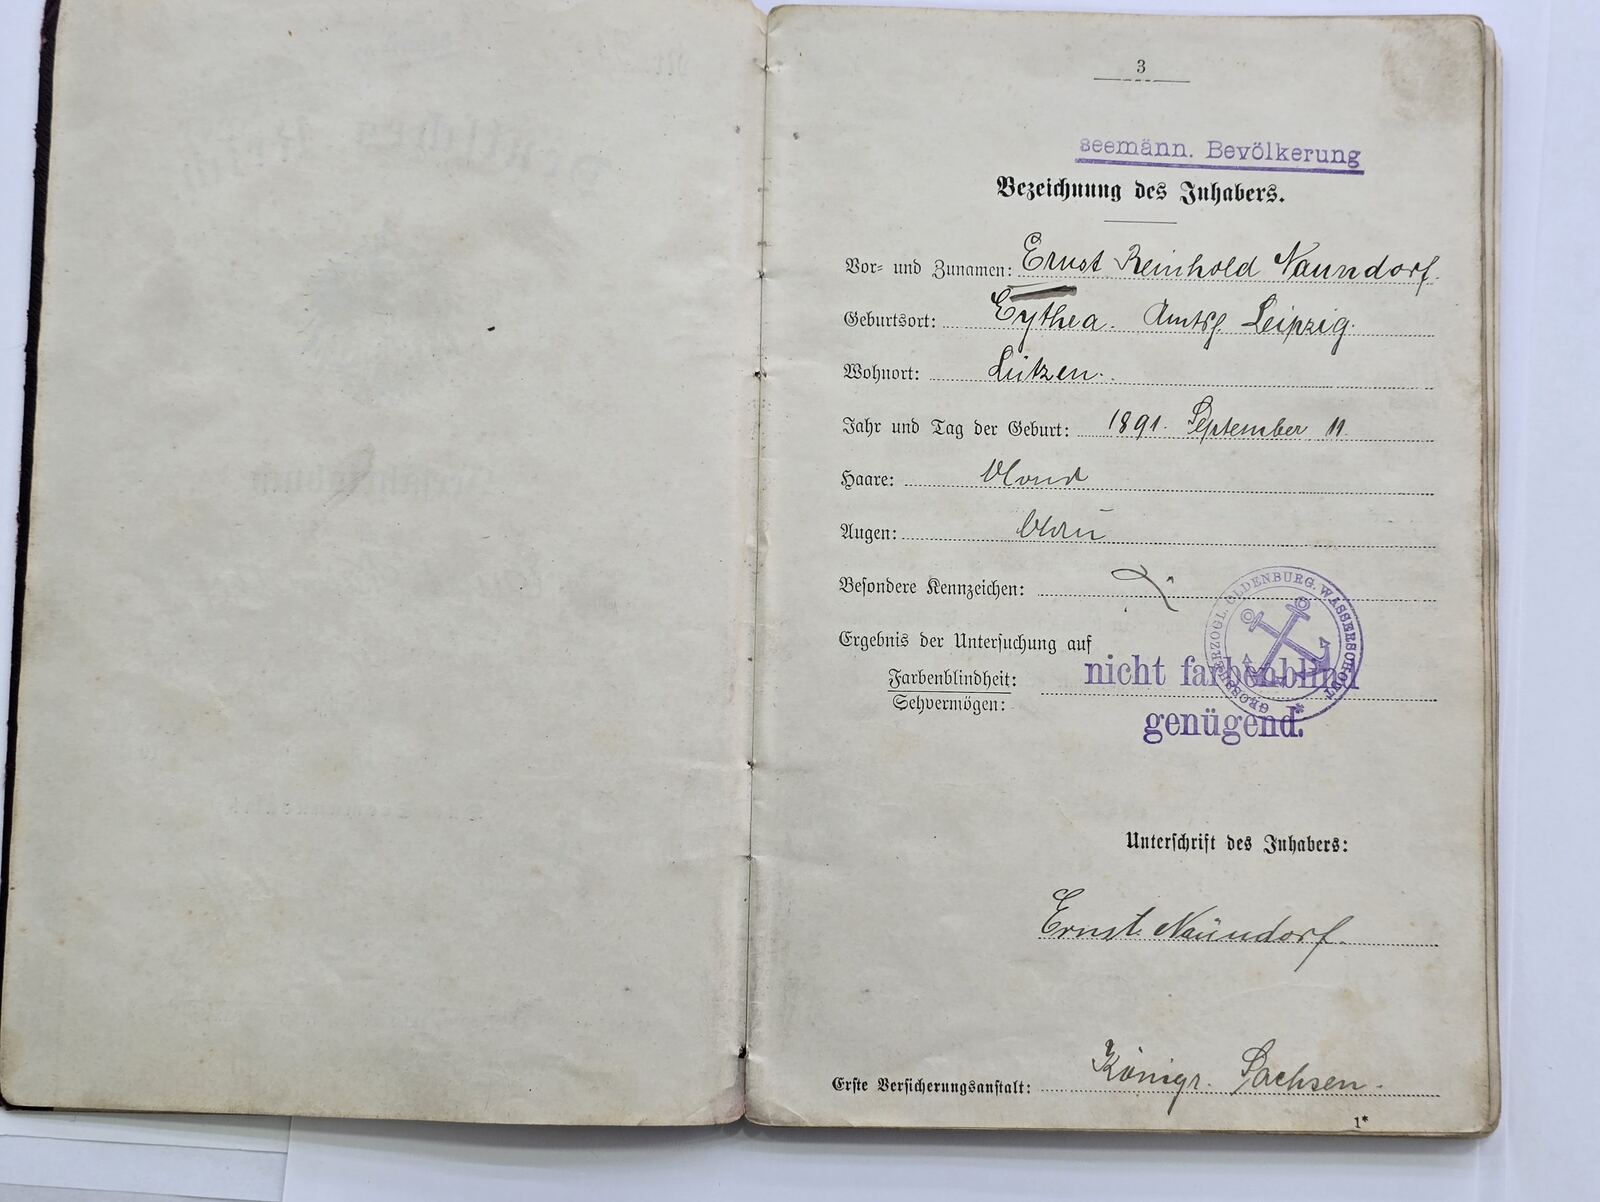 3
seemänn. Bevölkerung
Bezeichnung des Inhabers.
Vor- und Zunamen: Ernst Reinhold Naundorf.
Geburtsort: Eythra. Amtsg. Leipzig.
Wohnort: Lützen.
Jahr und Tag der Geburt: 1891. September 11.
Haare: blond
Augen: blau
Besondere Kennzeichen:
Ergebnis der Untersuchung auf
Farbenblindheit: nicht farbenblind
Sehvermögen: genügend.
GROSSHERZOGL. OLDENBURG. WASSERSCHOUT *
Unterschrift des Inhabers:
Ernst Naundorf.
Erste Versicherungsanstalt: Königr. Sachsen.
1*